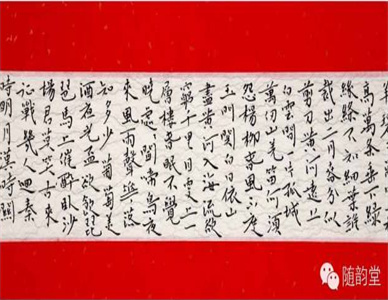 高萬条垂下綠
絲絛不知細葉誰
裁出二月春風似
剪刀黃河遠上
白雲間一片孤城
萬仞山羌笛何須
怨楊柳春風不度
玉門關白日依山
盡黃河入海流欲
窮千里目更上一
層樓春眠不覺
曉處處聞啼鳥夜
來風雨聲花落
知多少葡萄美
酒夜光杯欲飲琵
琶馬上催醉卧沙
場君莫笑古來
征戰幾人回秦
時明月漢時關
随韵堂